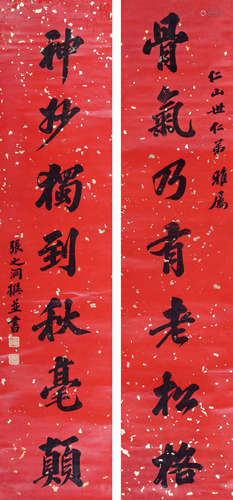 骨氣乃有老松格
仁山世仁弟 雅屬
神妙獨到秋毫顛
張之洞撰並書